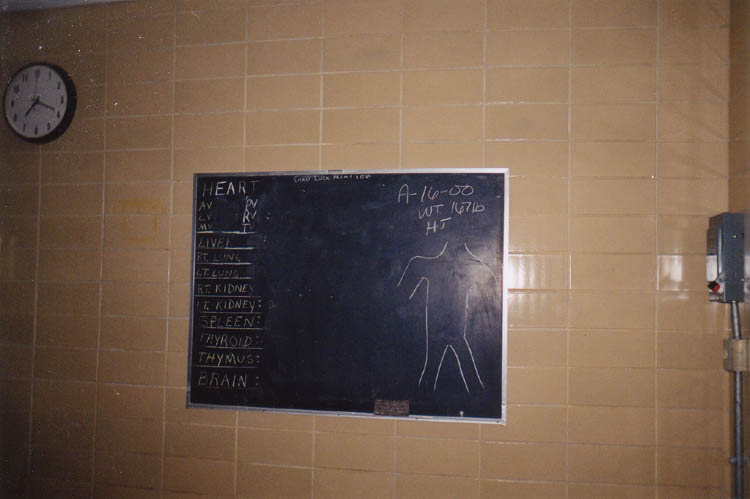 GOOD LUCK
HEART
AV PV
LV RV
MV TV
LIVER
RT. LUNG
LT. LUNG
RT. KIDNEY
LT. KIDNEY:
SPLEEN:
THYROID:
THYMUS:
BRAIN:
A-16-00
WT 167 lb
HT